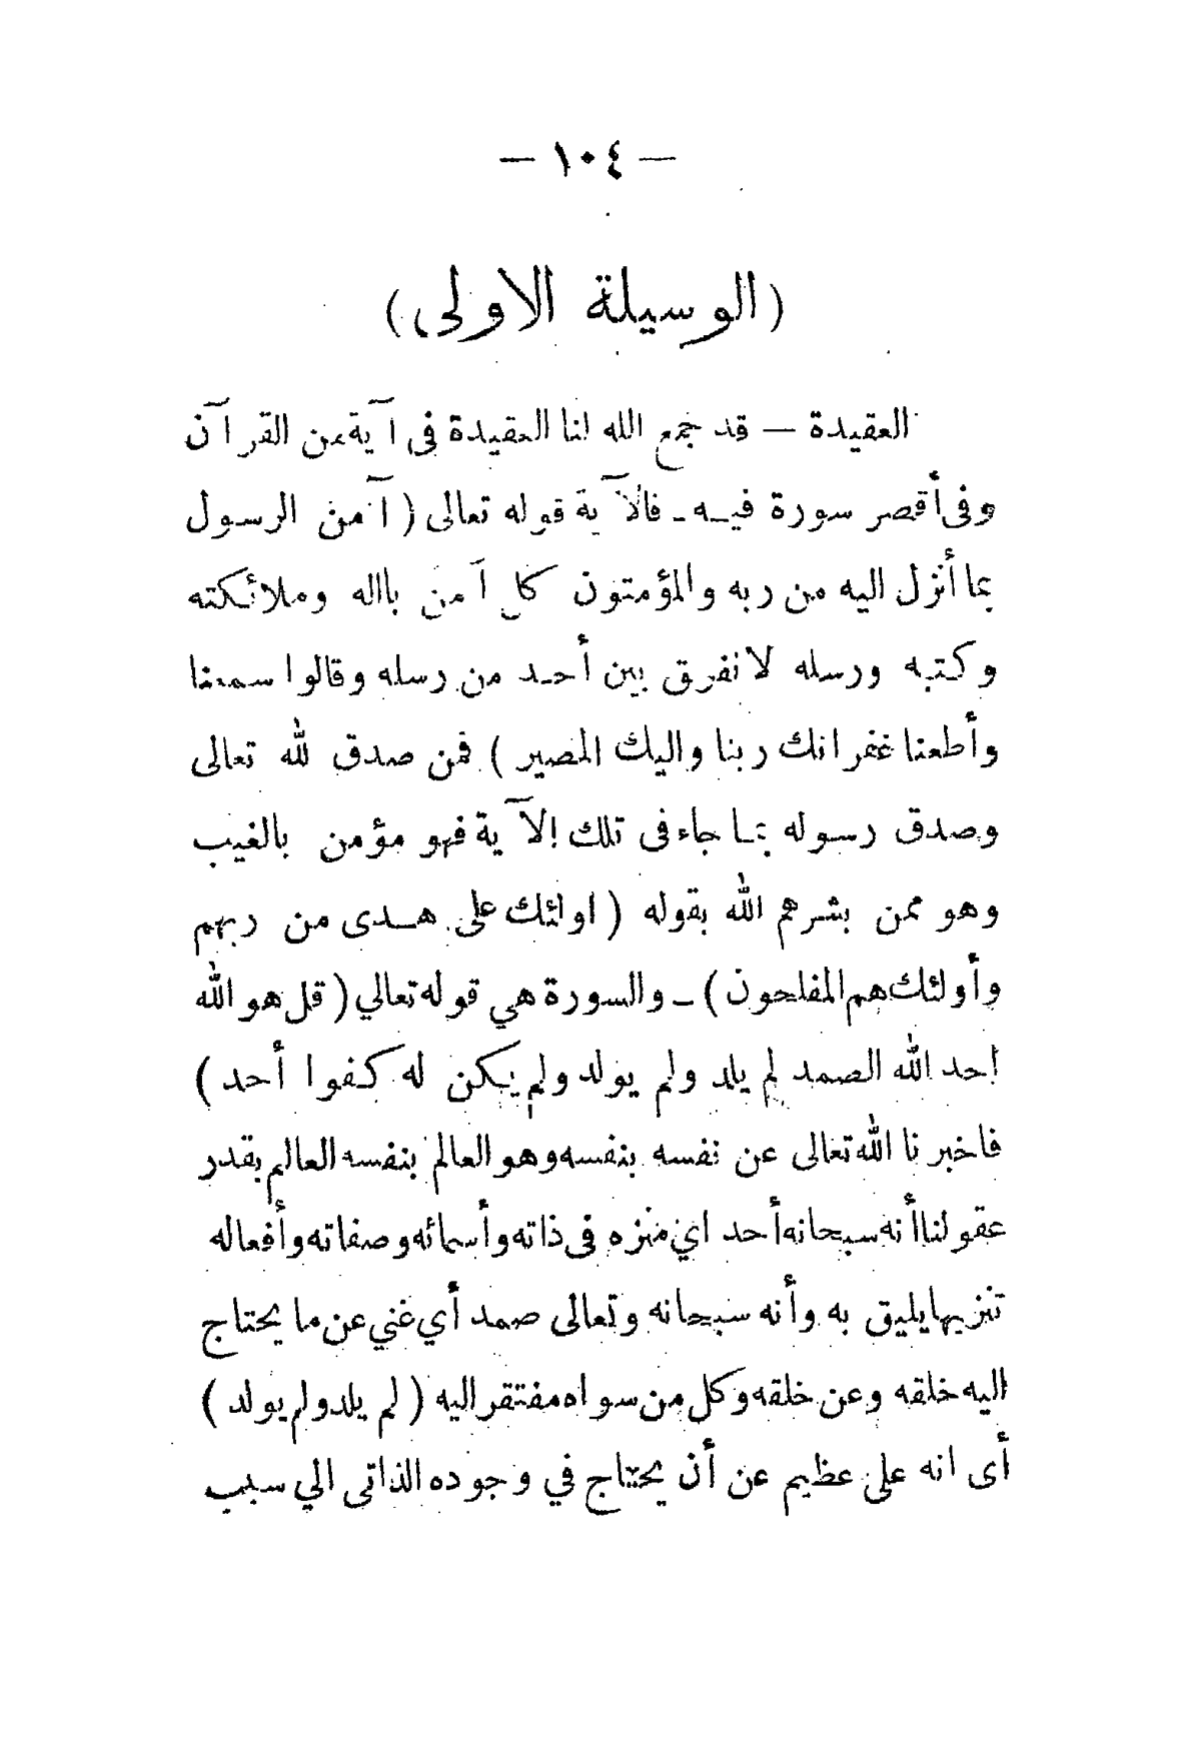 — ١٠٤ —
(الوسيلة الاولى)
العقيدة — قد جمع الله لنا العقيدة فى آية من القرآن
وفى أقصر سورة فيه - فالآية قوله تعالى (آمن الرسول
بما أنزل اليه من ربه والمؤمتون كل آمن باالله وملائكته
وكتبه ورسله لانفرق بين أحد من رسله وقالوا سمعنا
وأطعنا غفرانك ربنا واليك المصير) فمن صدق لله تعالى
وصدق رسوله بما جاء فى تلك الآية فهو مؤمن بالغيب
وهو ممن بشرهم الله بقوله (اولئك على هدى من ربهم
وأولئك هم المفلحون) - والسورة هي قوله تعالي (قل هو الله
احد الله الصمد لم يلد ولم يولد ولم يكن له كفوا أحد)
فاخبرنا الله تعالى عن نفسه بنفسه وهو العالم بنفسه العالم بقدر
عقولنا أنه سبحانه أحد اي منزه فى ذاته وأسمائه وصفاته وأفعاله
تنزيها يليق به وأنه سبحانه وتعالى صمد أي غني عن ما يحتاج
اليه خلقه وعن خلقه وكل من سواه مفتقر اليه (لم يلد ولم يولد)
أى انه على عظيم عن أن يحتاج في وجوده الذاتى الي سبب